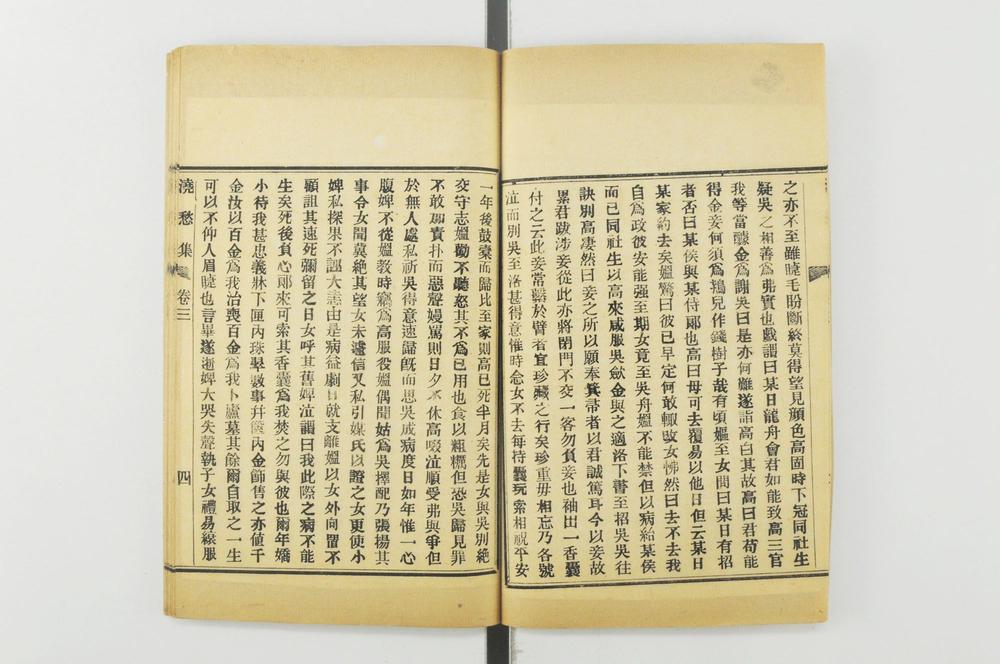 之亦不至雖睫毛盼斷終莫得望見顏色高固時下冠同社生
疑吳之相善爲弗實也戯謂曰某日龍舟會君如能致高三官
我等當醵金爲謝吳曰是亦何難遂詣高白其故高曰君苟能
得金妾何須爲鴇兒作錢樹子哉有頃嫗至女問曰某日有招
者否曰某侯與某侍郎也高曰母可去覆易以他日但云某日
某家約去矣嫗驚曰彼已早定何敢輙改女怫然曰去不去我
自爲政彼安能强至期女竟至吳舟嫗不能禁但以病給某侯
而已同社生以高來咸服吳歛金與之適洛下書至招吳吳往
訣別高凄然曰妾之所以願奉箕帚者以君誠篤耳今以妾故
累君跋涉妾從此亦將閉門不交一客勿負妾也袖出一香囊
付之云此妾常繫於臂者宜珍藏之行矣珍重毋相忘乃各號
泣而別吳至洛甚得意惟時念女不去每持囊玩索相視平安
一年後鼓槖而歸比至家則高已死半月矣先是女與吳別絕
交守志嫗勸不聽怒其不爲已用也食以粗糲但恐吳歸見罪
不敢加責扑而惡聲嫚罵則日夕不休高啜泣順受弗與爭但
於無人處私祈吳得意速歸旣而思吳成病度日如年惟一心
腹婢不從嫗教時竊爲高服役嫗偶聞姑爲吳擇配乃張揚其
事令女聞冀絕其望女未遽信又私引媒氏以證之女更使小
婢私探果不誣大恚由是病益劇日就支離嫗以女外向置不
顧詛其速死彌留之日女呼其舊婢泣謂曰我此際之病不能
生矣死後負心郎來可索其香囊爲我焚之勿與彼也爾年嬌
小待我甚忠義牀下匣內珠翠數事幷篋內金飾售之亦値千
金汝以百金爲我治喪百金爲我卜廬墓其餘爾自取之一生
可以不仰人眉睫也言畢遂逝婢大哭失聲執子女禮易縗服
澆愁集 卷三 四